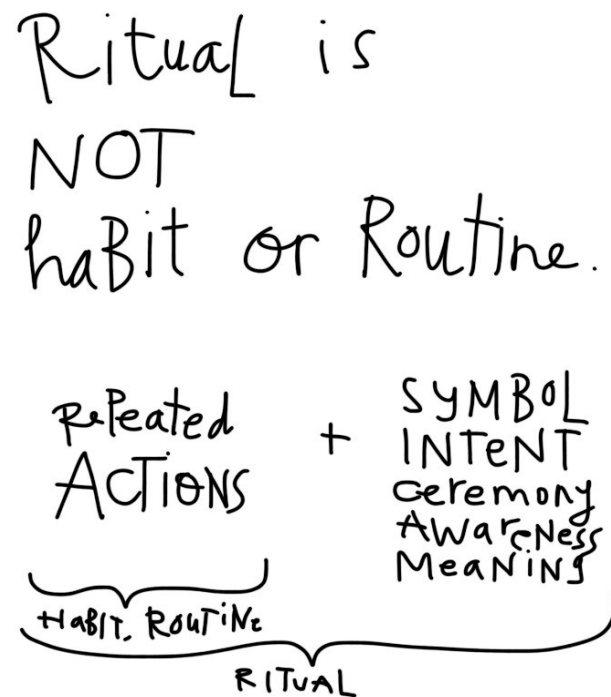 Ritual is
NOT
haBit or Routine.
RePeated
ACTiONS
+
SYMBOL
INTeNT
Ceremony
AWAreNess
MeaNiNg
HaBIT, ROUTiNe
RITUAL